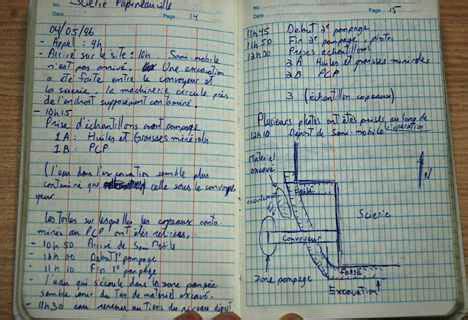 Scierie Papineauville
Page 14
04/05/96
- Appel : 9h
- Arrivé sur le site : 10h Sani mobile
n'est pas arrivé. Une excavation
a été faite entre le convoyeur et
la scierie. la machinerie circule près
de l'endroit supposément contaminé.
- 10h15
Prise d'échantillons avant pompage
1A : Huiles et Graisses minérales
1B : PCP
(l'eau dans l'excavation semble plus
contaminé que celle sous le convoyeur
les toiles sur lesquelles les copeaux conta-
minés au PCP ont été
- 10h50 Arrivé de Sani Mobile
- 11h00 Début 1er pompage
- 11h10 Fin 1er pompage
- l'eau qui s'écoule dans la zone pompée
semble venir du tas de matériel excavé.
- 11h30 eau au niveau
No.
Date
Page 15
11h45 Début 2e pompage
11h50 Fin 2e pompage
12h00 Prises échantillons
2A Huiles et graisses minérales
2B PCP
3 (échantillon copeaux)
Plusieurs photos ont été prises au long de
l'opération
12h10 Départ de Sani mobile
Matériel
excavé
Fossé
N
Scierie
Convoyeur
zone pompage
Fossé
Excavation